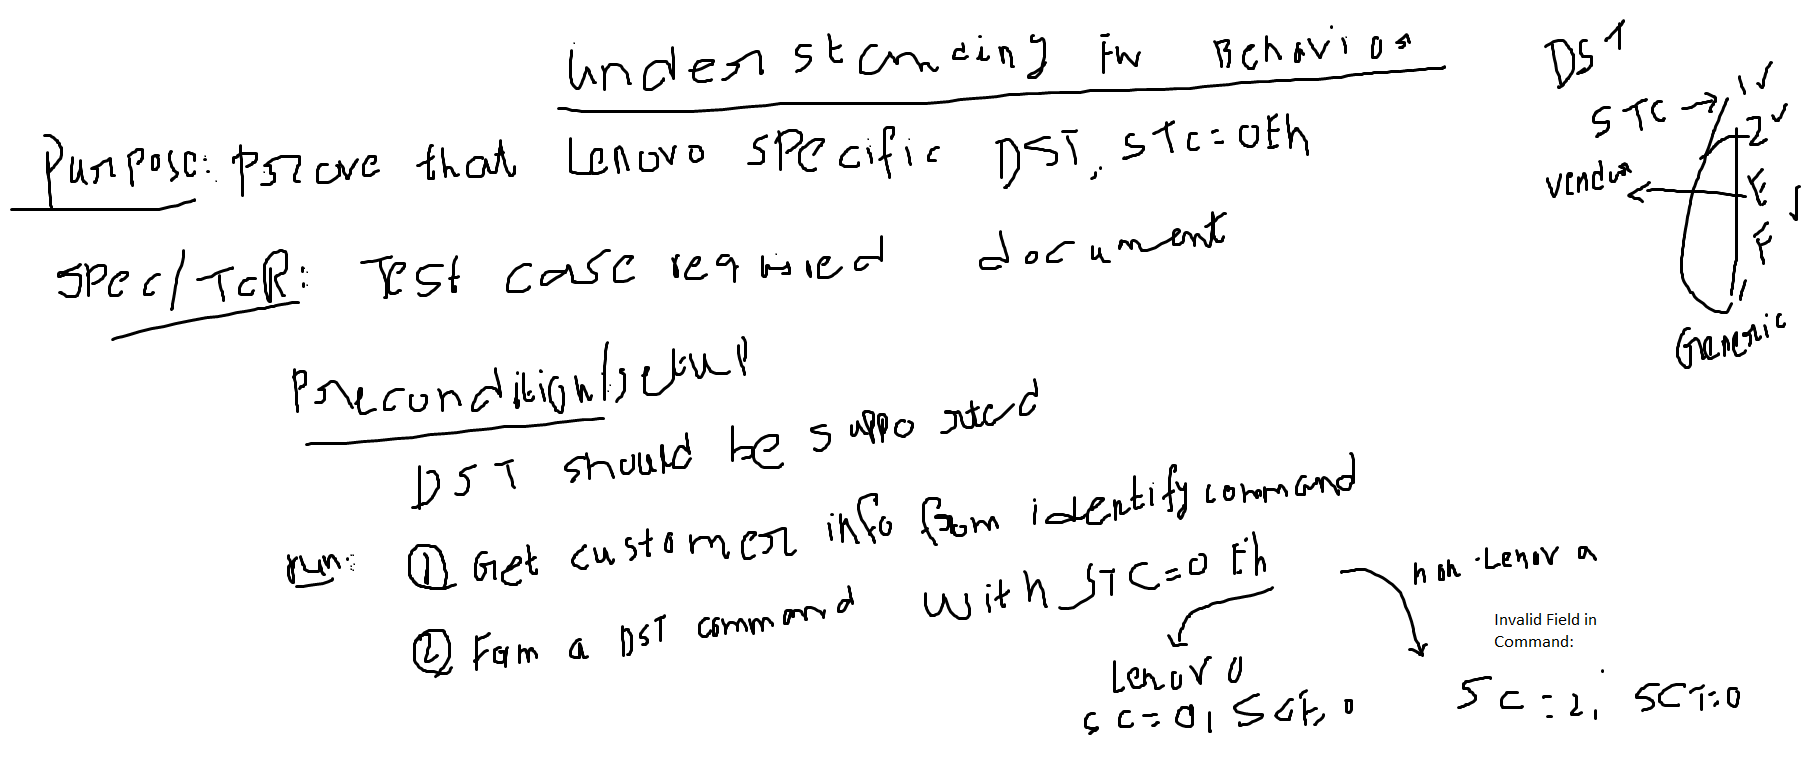 Understanding FW Behavior
Purpose: Prove that Lenovo SPecific DST, STC=0Eh
SPec/TCR: Test case required document
Precondition/setup
DST should be supported
run: ① Get customer info from identify command
② Form a DST command with STC=0Eh
Lenovo
SC=0, SCT=0
non-Lenovo
Invalid Field in
Command:
SC=2, SCT=0
DST
STC → 1 ✓
2 ✓
vendor ← E
F
Generic